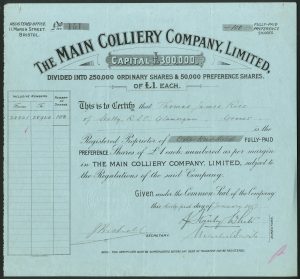 REGISTERED OFFICE
11 MARSH STREET
BRISTOL.
FULLY-PAID
PREFERENCE
SHARES.
THE MAIN COLLIERY COMPANY, LIMITED,
CAPITAL £300,000.
DIVIDED INTO 250,000 ORDINARY SHARES & 50,000 PREFERENCE SHARES,
OF £1 EACH.
INCLUSIVE NUMBERS
NUMBER OF SHARES
From To
This is to Certify that Thomas James Rice
of Sketty R.S.O. Glamorgan
is the
Registered Proprietor of One Hundred FULLY-PAID
PREFERENCE Shares of £1 each, numbered as per margin
in THE MAIN COLLIERY COMPANY, LIMITED, subject to
the Regulations of the said Company.
Given under the Common Seal of the Company
this day of January
SECRETARY
NOTE.—THIS CERTIFICATE MUST BE SURRENDERED BEFORE ANY DEED OF TRANSFER CAN BE REGISTERED.